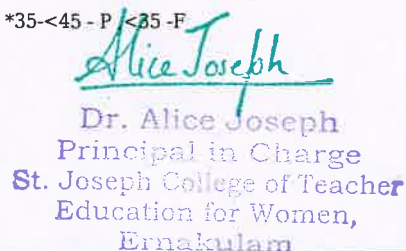 *35-<45 - P ,<35 -F
Alice Joseph
Dr. Alice Joseph
Principal in Charge
St. Joseph College of Teacher
Education for Women,
Ernakulam